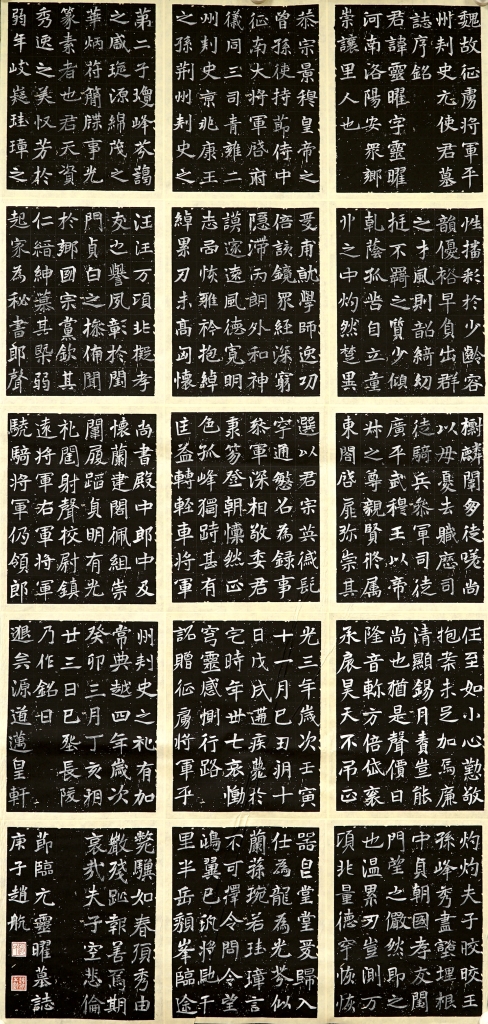 魏故征虜將軍平
州刾史元使君墓
誌序銘
君諱靈曜字靈曜
河南洛陽安眾鄉
崇讓里人也
恭宗景穆皇帝之
曾孫使持節侍中
征南大將軍啓府
儀同三司青雍二
州刾史京兆康王
之孫荆州刾史之
第二子瓊峰芬藹
之盛琁源綿茂之
華炳苻簡牒事光
篆素者也君天資
秀逸之美悞芳於
弱年岐嶷珪璋之
性播彩於少齡容
韻優裕早負出群
之才風則韶綺幼
挺不羈之質少傾
乾蔭孤呰自立童
丱之中灼然楚異
爰甫就學師逸功
倍該鏡眾經深窮
隱滯而朗外和神
謨邃遠風德寬明
志局恢雅衿抱綽
綽果刃未高凶懷
汪汪万頃北擬孝
友之譽夙彰於閨
門貞白之操備聞
於鄉國宗黨欽其
仁縉紳慕其槩弱
起家為秘書郎聲
麟閣匆徒嗟尚
以母憂去職歷司
徒騎兵叅軍司徒
廣平武穆王以帝
叔之尊親賢將属
東閤啓扉弥崇其
選以君宗英俶髦
宇通懋名為録事
叅軍深相敬委君
秉笏登朝懍然正
色孤峰獨跱甚有
匡益轉輕車將軍
尚書殿中郎中及
懷蘭建閣佩組崇
闈履蹈貞明有光
礼閣射聲校尉鎮
遠將軍右軍將軍
驍騎將軍仍領郎
任至如小心懃敬
抱案未足加焉廉
清顯錫月賣豈能
尚也猶是聲價日
隆音軫方倍岱袞
承衮昊天不吊正
光三年歲次壬寅
十一月己丑朔十
日戊戌遘疾薨於
宅時年卅七哀慟
穹靈感惻行路
詔贈征虜將軍平
州刾史之礼有加
常典越四年歲次
癸卯三月丁亥朔
廿三日己酉長陵
乃作銘曰
邈矣源道邁皇軒
灼灼夫子皎皎王
孫峰秀盡壑埋根
中貞朝國孝友閨
門望之儼然即之
也温累刃豈測万
頃兆量德宇恢恢
器㠯堂堂爰歸入
仕為龍為光芬似
蘭蓀琬若珪璋言
不可擇令問令望
鴻翼已矯將馳千
里半岳頹峯臨途
斃驥如春須秀由
散殘跡報善爲期
哀哉夫子空悲倫
節臨元靈曜墓誌
庚子趙航